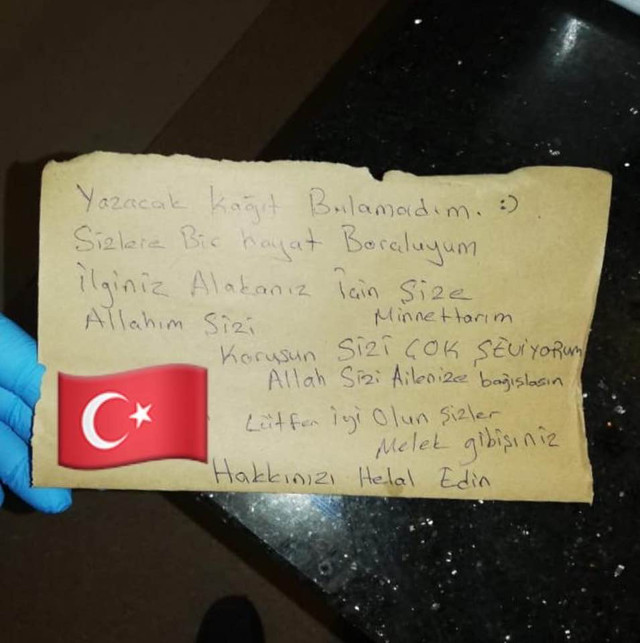 Yazacak Kağıt Bulamadım. :)
Sizlere Bir hayat Borcluyum
İlginiz Alakanız İçin Size
Minnettarım
Allahım Sizi
Korusun SİZİ ÇOK SEViYORUM
Allah Sizi Ailenize bağışlasın
Lütfen iyi Olun Sizler
Melek gibisiniz
Hakkınızı Helal Edin